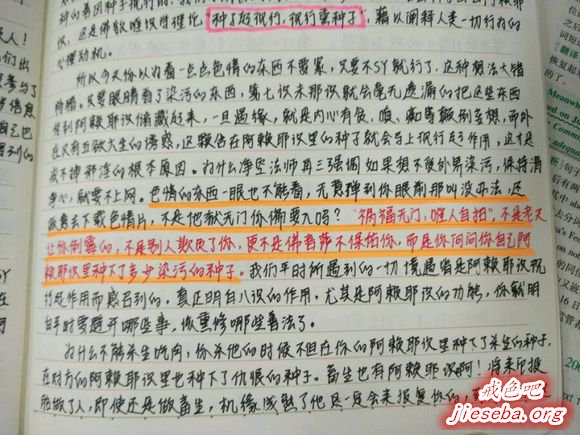 识，这是佛教唯识学理论，"种子起现行，现行熏种子"，藉以阐释人类一切行为的
心理动机。
所以今天你以为看一点点色情的东西不要紧，只要不SY就行了，这种想法大错
特错。只要眼睛看了染污的东西，第七识末那识就会毫无遗漏的把这些东西
传到阿赖耶识储藏起来，一旦遇缘，就是内心有贪、嗔、痴等烦恼到至极，而外
在又有五欲六尘的诱惑，这颗住在阿赖耶识里的种子就会马上现行起作用，这才是
戒不掉邪淫的根本原因。为什么净空法师再三强调如果想不受外界染污，保持清
净心，就要不上网。色情的东西一眼也不能看，无意弹到你眼前那叫没办法，还
故意去下载色情片，不是地狱无门你偏要入吗？"祸福无门，唯人自招"，不是老天
让你倒霉的，不是别人欺负了你，更不是佛菩萨不保佑你，而是你问问你自己阿
赖耶识里种下了多少染污的种子。我们平时所遇到的一切境遇皆是阿赖耶识现
行起作用而感召到的。真正明白八识的作用，尤其是阿赖耶识的功能，你就明
白平时要避开哪些事，做熏修哪些善法了。
为什么不能杀生吃肉，你杀他的时候不但在你的阿赖耶识里种下了杀生的种子，
在对方的阿赖耶识里也种下了仇恨的种子。畜生也有阿赖耶识啊！将来你投
胎做了人，即使还是做畜生，机缘成熟了他是一定会来报复你的，
戒色吧
jieseba.org